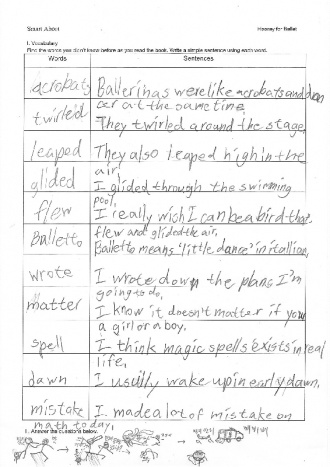 Smart About
Hooray for Ballet
I. Vocabulary
Find the words you didn't know before as you read the book. Write a simple sentence using each word.
Words Sentences
acrobats Ballerinas were like acrobats and
cer at the same time
twirled They twirled around the stage.
leaped They also leaped high in the
air.
glided I glided through the swimming
pool.
flew I really wish I can be a bird that
flew and glided the air.
Balletto Balletto means 'little dance' in itallian.
wrote I wrote down the plans I'm
going to do.
matter I know it doesn't matter if you
a girl or a boy.
spell I think magic spells exists in real
life.
dawn I usully wake up in early dawn.
mistake I made a lot of mistake on
math today.
1. Answer the questions below.